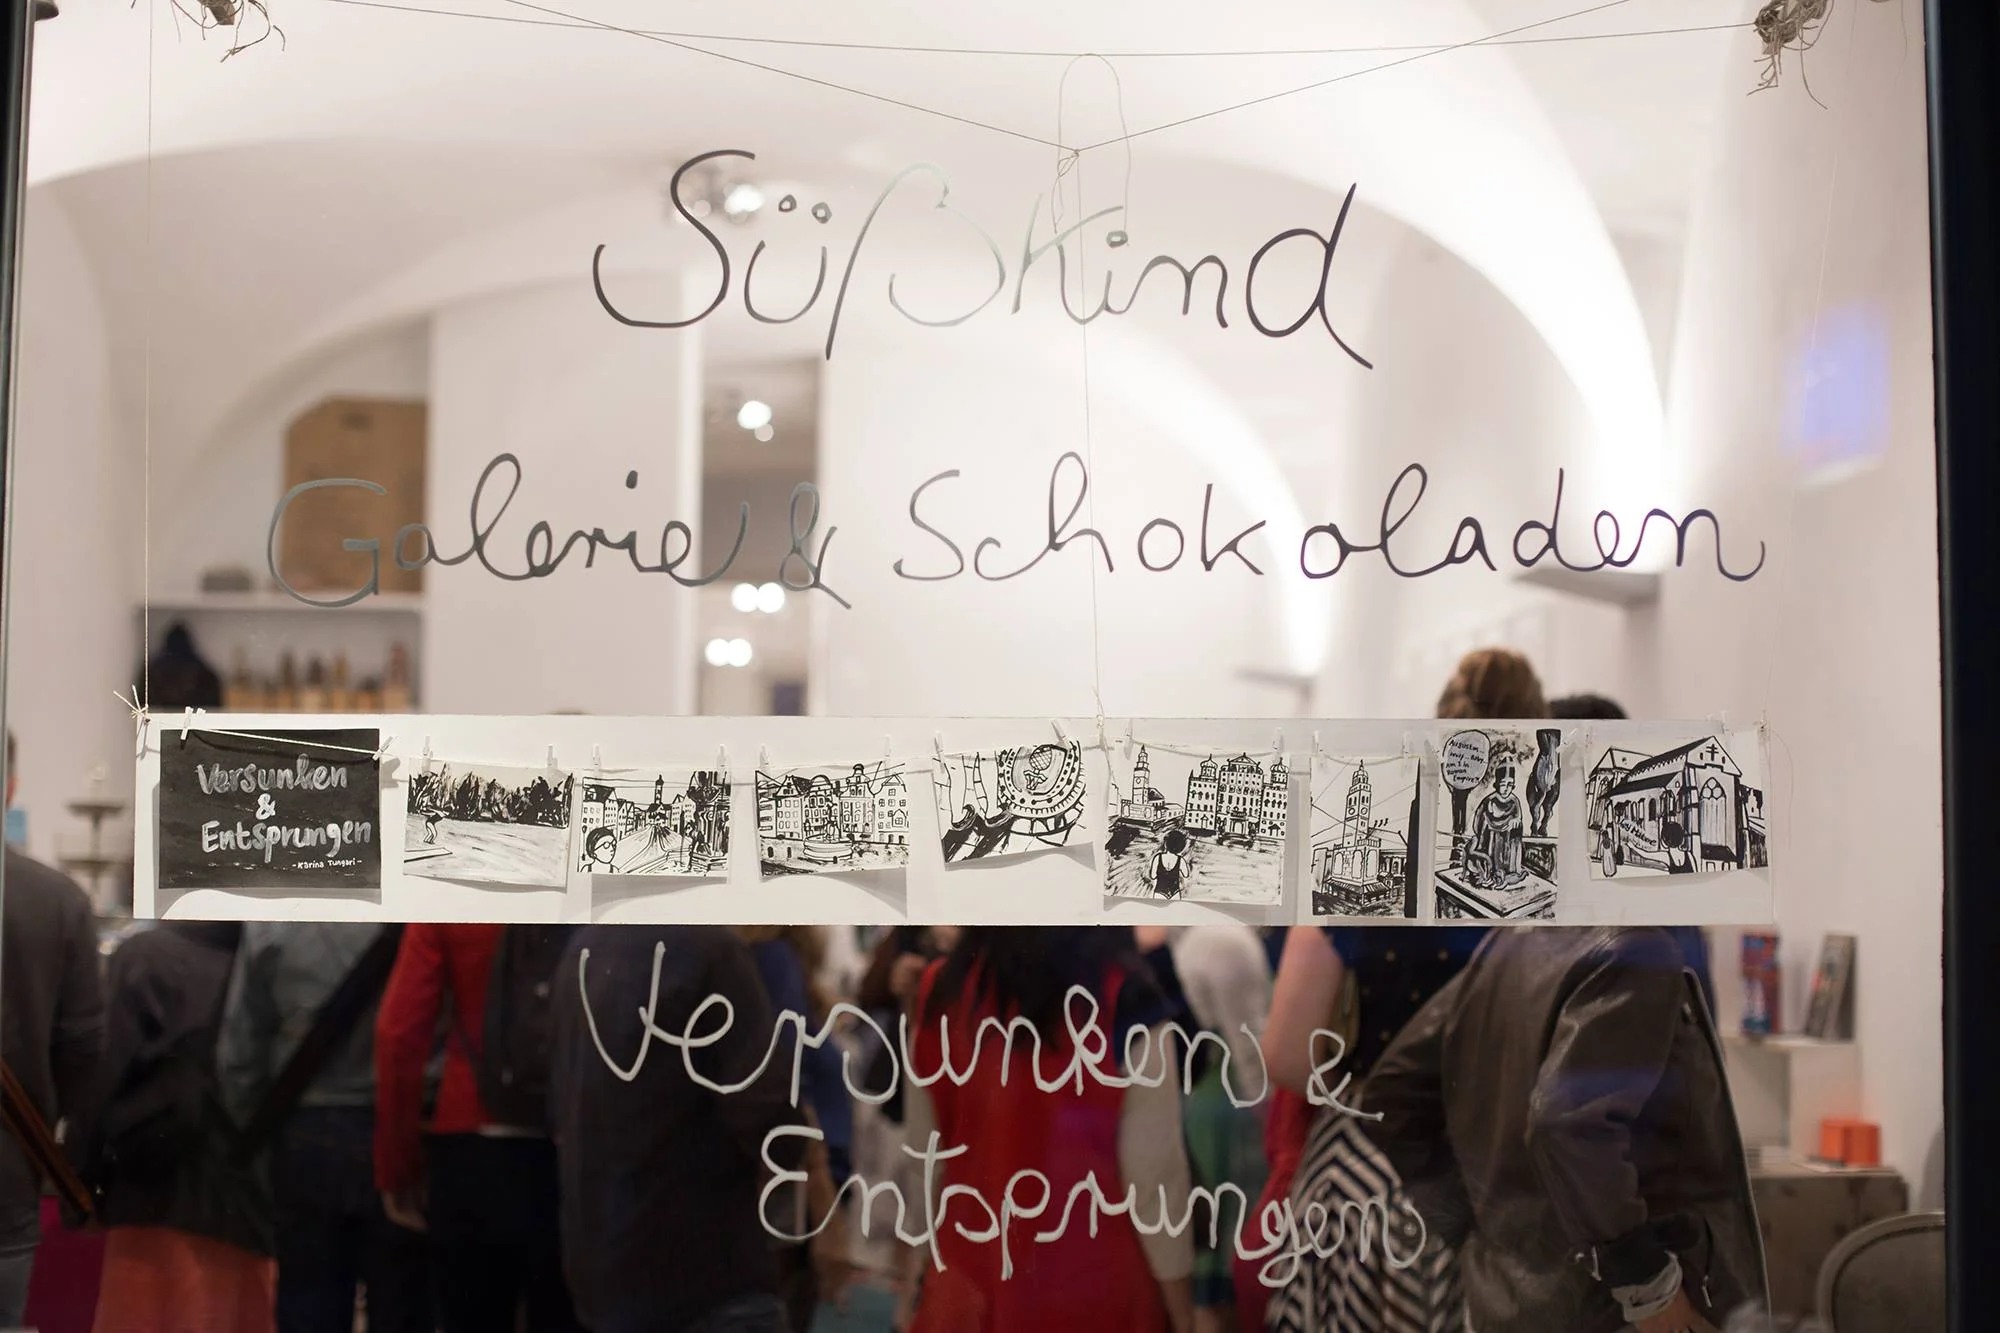 Süßkind
Galerie & Schokoladen
Versunken
&
Entsprungen
- Karina Tungari -
Versunken &
Entsprungen